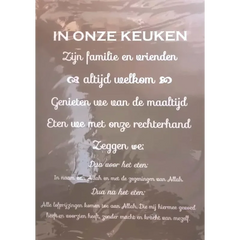 IN ONZE KEUKEN
Zijn familie en vrienden
altijd welkom
Genieten we van de maaltijd
Eten we met onze rechterhand
Zeggen we:
Dua voor het eten:
In naam van Allah en met de zegeningen van Allah.
Dua na het eten:
Alle lofprijzingen komen toe aan Allah. Die mij hiermee gevoed
heeft en voorzien heeft, zonder macht en kracht van mezelf.